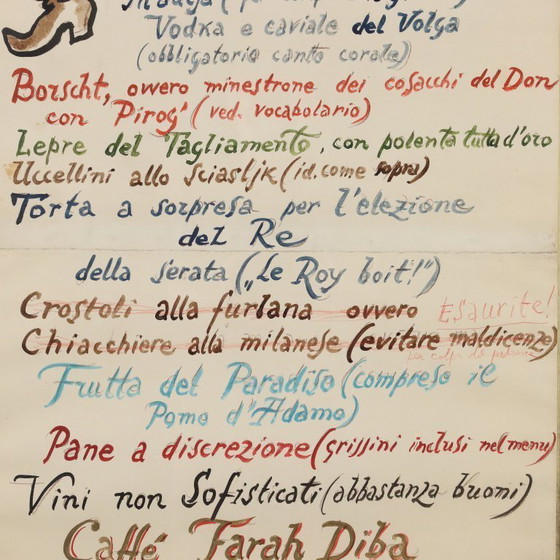 Vodka e caviale del Volga
(obbligatorio canto corale)
Borscht, ovvero minestrone dei cosacchi del Don
con Pirog' (ved. vocabolario)
Lepre del Tagliamento, con polenta tutta d'oro
Uccellini allo Sciasljk (id. come sopra)
Torta a sorpresa per l'elezione
del Re
della serata („Le Roy boit!")
Crostoli alla furlana ovvero Esaurite!
Chiacchiere alla milanese (evitare maldicenze)
Frutta del Paradiso (compreso il
Pomo d'Adamo)
Pane a discrezione (grissini inclusi nel menu)
Vini non Sofisticati (abbastanza buoni)
Caffé Farah Diba